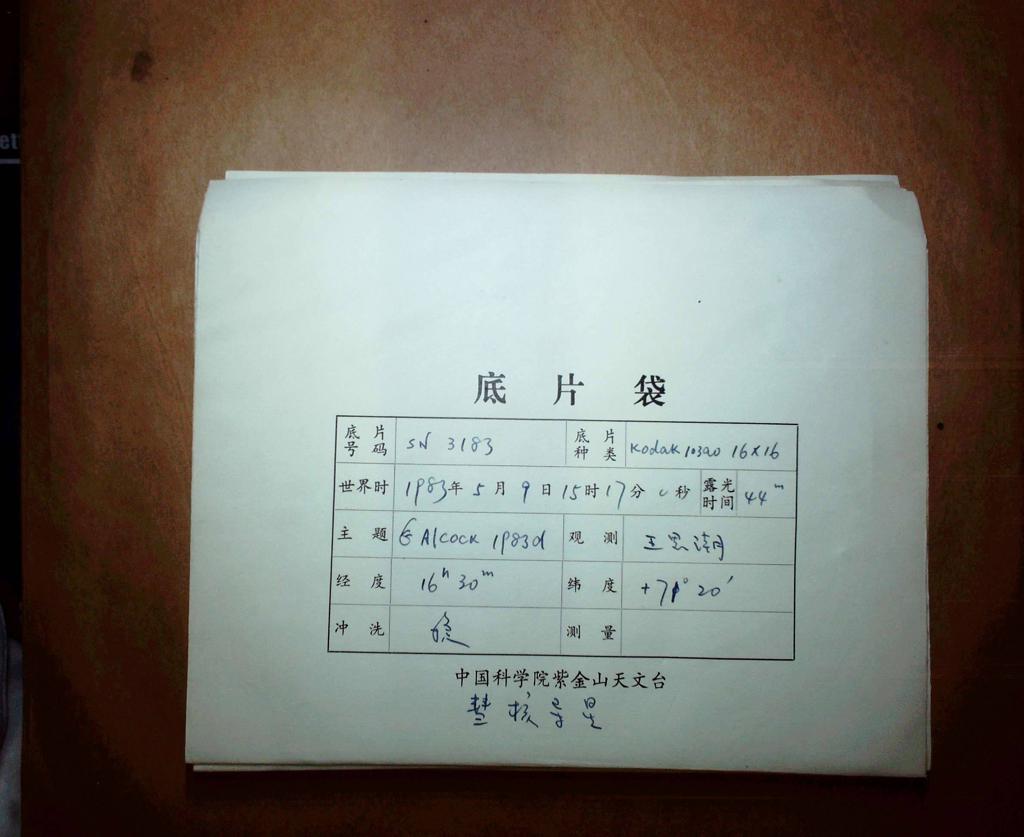 底片袋
底片号码 SN 3183 底片种类 Kodak 103aO 16×16
世界时 1983年 5月 9日 15时 17分 0秒 露光时间 44ᵐ
主题 Alcock 1983d 观测 王思潮
经度 16ʰ 30ᵐ 纬度 +71° 20′
冲洗 测量
中国科学院紫金山天文台
彗核导星